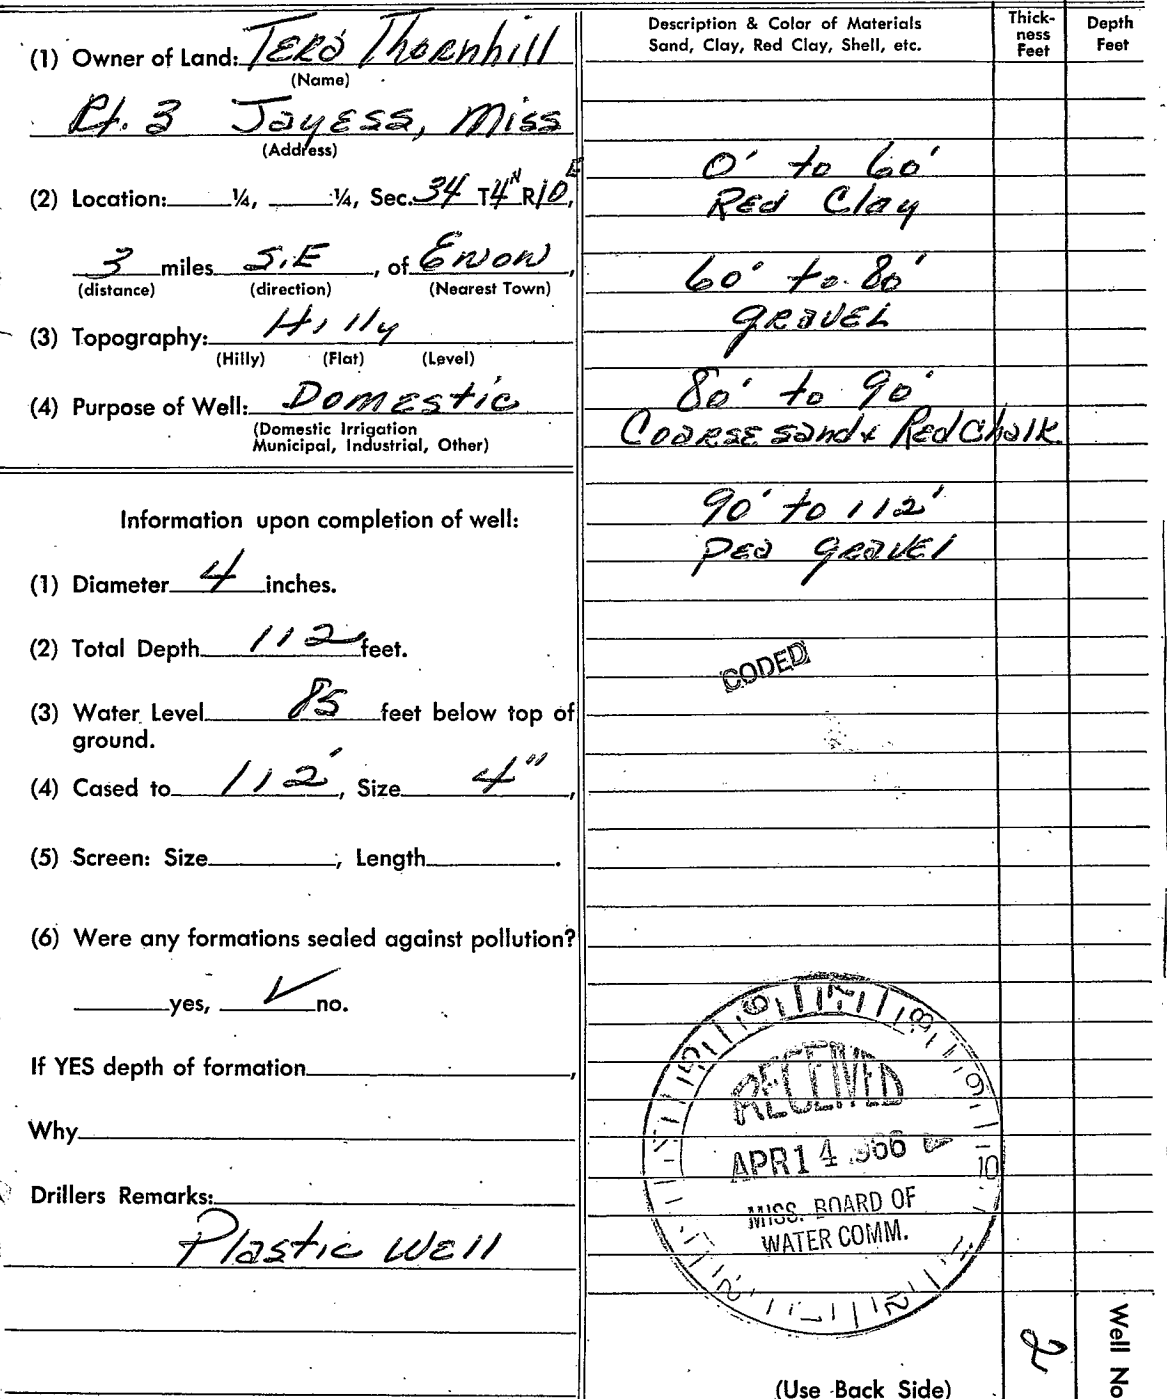 (1) Owner of Land: Tera Thornhill
(Name)
Rt. 3 Jayess, Miss
(Address)
(2) Location: ¼, ¼, Sec. 34 T4N R10E,
3 miles S.E, of Enon,
(distance) (direction) (Nearest Town)
(3) Topography: Hilly
(Hilly) (Flat) (Level)
(4) Purpose of Well: Domestic
(Domestic Irrigation
Municipal, Industrial, Other)
Information upon completion of well:
(1) Diameter 4 inches.
(2) Total Depth 112 feet.
(3) Water Level 85 feet below top of
ground.
(4) Cased to 112', Size 4",
(5) Screen: Size , Length .
(6) Were any formations sealed against pollution?
yes, ✓ no.
If YES depth of formation ,
Why
Drillers Remarks:
Plastic Well
Description & Color of Materials
Sand, Clay, Red Clay, Shell, etc.
Thick-
ness
Feet
Depth
Feet
0' to 60'
Red Clay
60' to 80'
gravel
80' to 90'
Coarse sand & Red Chalk
90' to 112'
pea gravel
CODED
RECEIVED
APR 14 1966
MISS. BOARD OF
WATER COMM.
(Use Back Side)
2
Well No